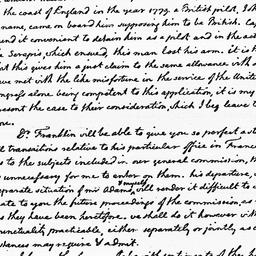 the coast of England in the year 1779. a British pilot, I
name, came on board him supposing him to be British. Cap
und it convenient to detain him as a pilot and in the ac
Serapis, which ensued, this man lost his arm. it is
that this gives him a just claim to the same allowance with o
ave met with the like misfortune in the service of the Unite
ongress alone being competent to this application, it is my
resent the case to their consideration, which I beg leave t
ou.
Dr Franklin will be able to give you so perfect a st
ll transactions relative to his particular office in Franc
as to the subjects included in our general commission, th
unnecessary for me to enter on them. his departure,
eparate situation of mr Adams & myself will render it difficult to
ate to you the future proceedings of the commission, as
as they have been heretofore. we shall do it however wit
punctuality practicable, either separately or jointly, as c
stances may require & admit.